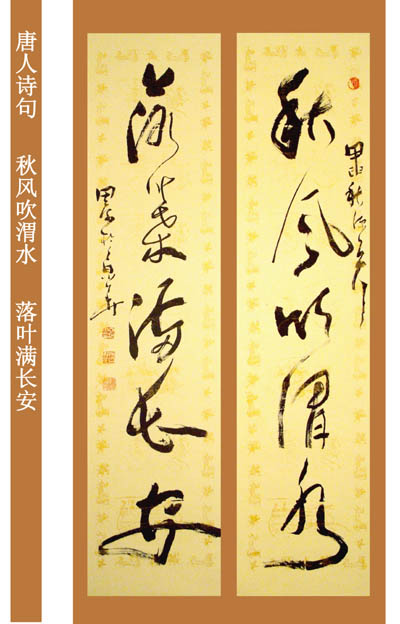 唐人诗句 秋风吹渭水 落叶满长安
秋風吹渭水
落葉滿長安